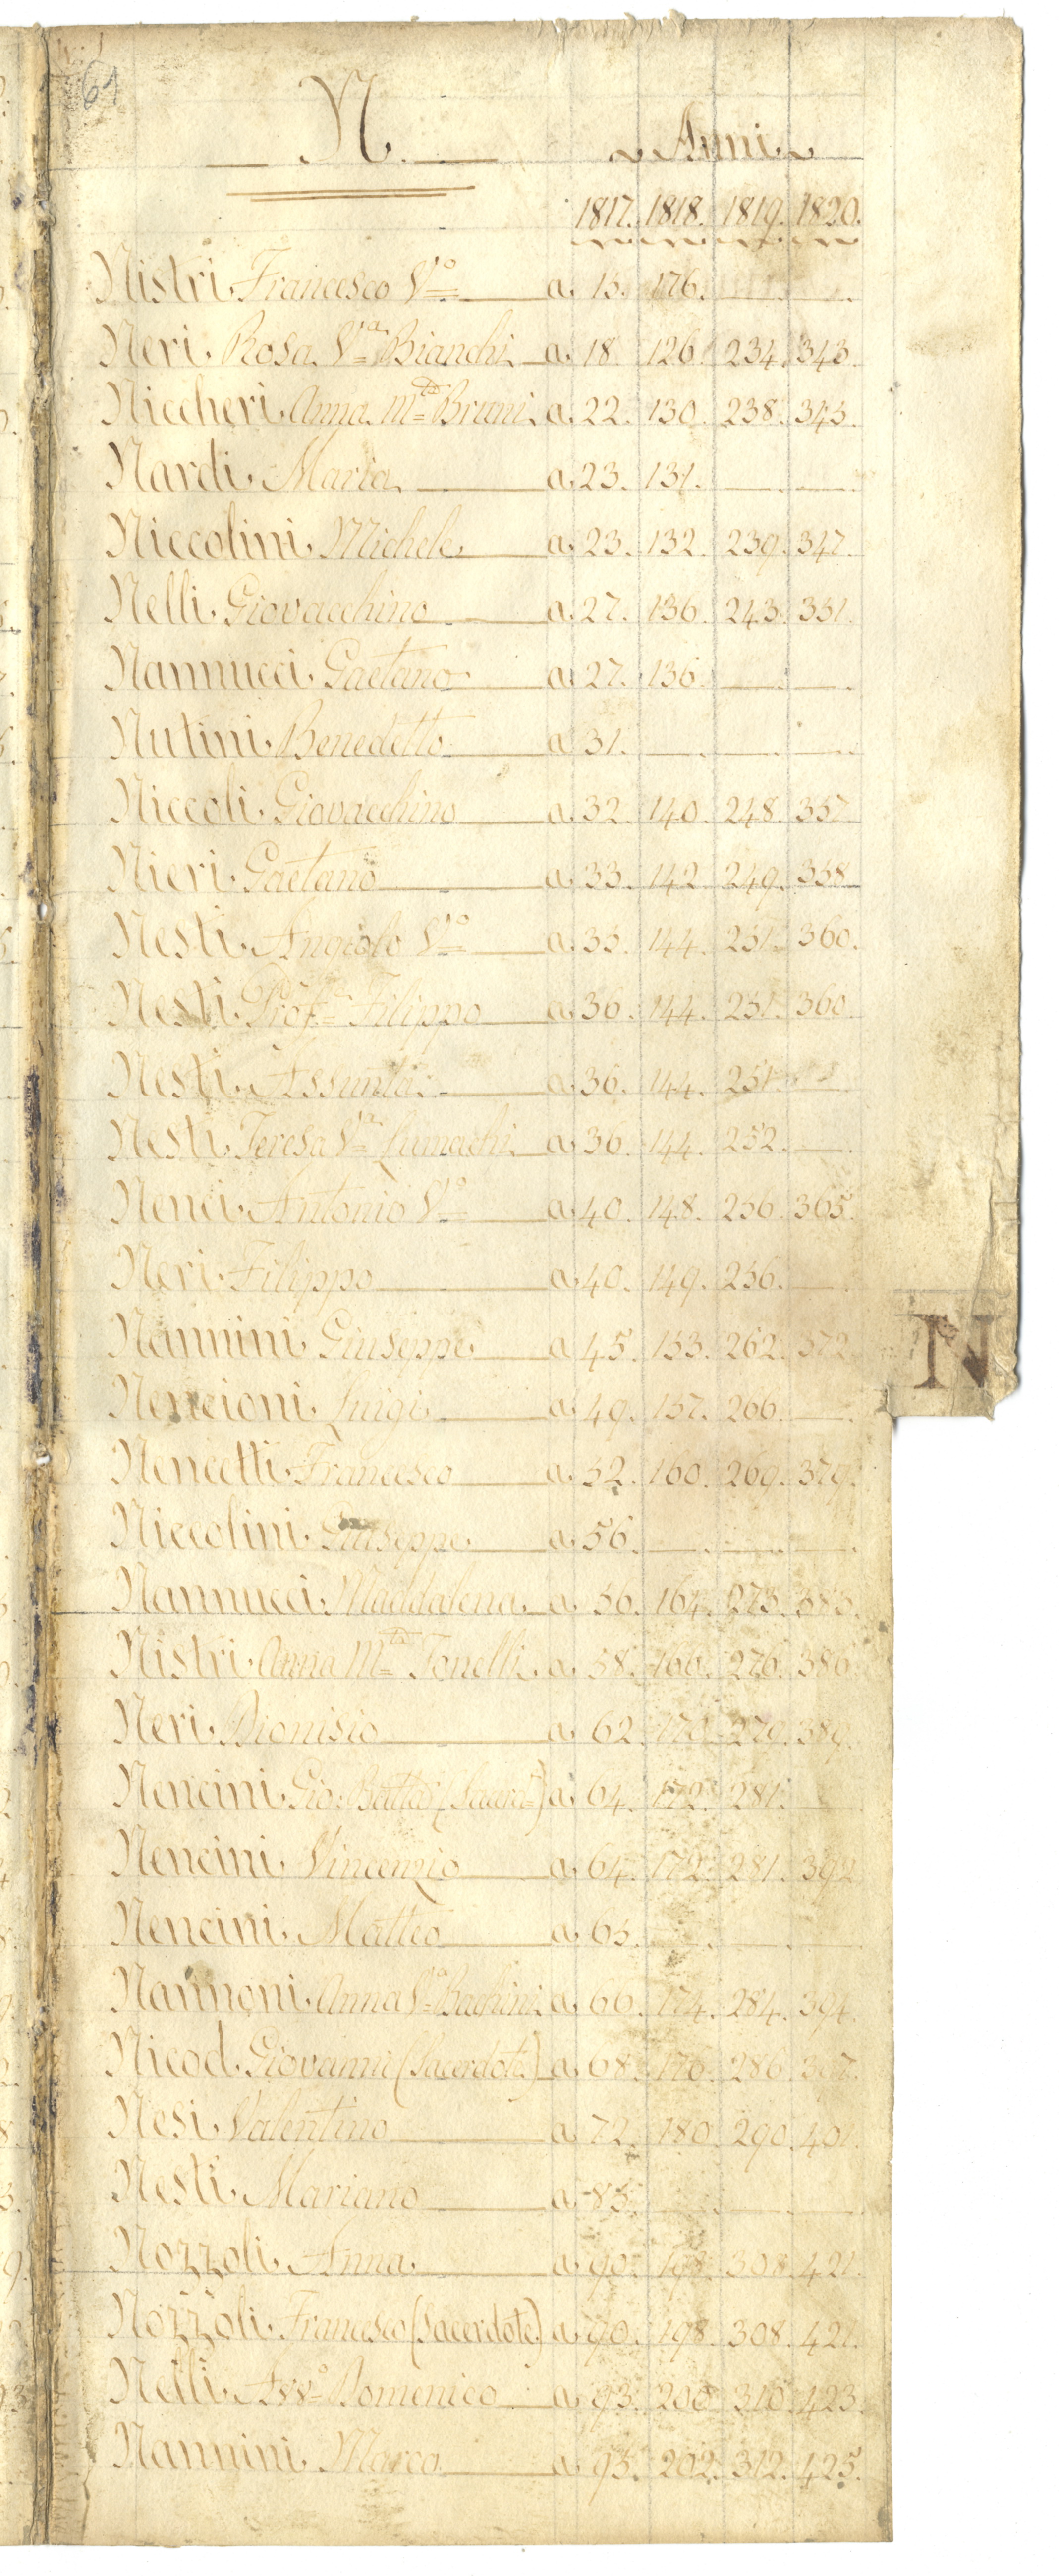 61
N.
Anni
1817. 1818. 1819. 1820.
Nistri Francesco V.º a 15. 176.
Neri Rosa V.ª Bianchi a 18. 126. 234. 343.
Niccheri Anna M.ta Bruni a 22. 130. 238. 345.
Nardi Maria a 23. 131.
Niccolini Michele a 23. 132. 239. 347.
Nelli Giovacchino a 27. 136. 243. 351.
Nannucci Gaetano a 27. 136.
Nutini Benedetto a 31.
Niccoli Giovacchino a 32. 140. 248. 357.
Nieri Gaetano a 33. 142. 249. 358.
Nesti Angiolo V.º a 35. 144. 251. 360.
Nesti Filippo a 36. 144. 251. 360.
Nesti Assunta a 36. 144. 251.
Nesti Teresa V.ª Lumachi a 36. 144. 252.
Nenci Antonio V.º a 40. 148. 256. 365.
Neri Filippo a 40. 149. 256.
Nannini Giuseppe a 45. 153. 262. 372.
N
Nencioni Luigi a 49. 157. 266.
Nencetti Francesco a 52. 160. 269. 379.
Niccolini Giuseppe a 56.
Nannucci Maddalena a 56. 164. 273. 383.
Nistri Anna M.ta Tonelli a 58. 166. 276. 386.
Neri Dionisio a 62. 279. 389.
Nencini Gio: Batta (Sacerd.e) a 64. 172. 281.
Nencini Vincenzio a 64. 172. 281. 392.
Nencini Matteo a 65.
Nannoni Anna V.ª Bachini a 66. 174. 284. 394.
Nicod Giovanni (Sacerdote) a 68. 176. 286. 397.
Nesi Valentino a 72. 180. 290. 401.
Nesti Mariano a 85.
Nozzoli Anna a 90. 198. 308. 421.
Nozzoli Francesco (Sacerdote) a 90. 198. 308. 421.
Nelli Avv.º Domenico a 93. 200. 310. 423.
Nannini Marco a 95. 202. 312. 425.